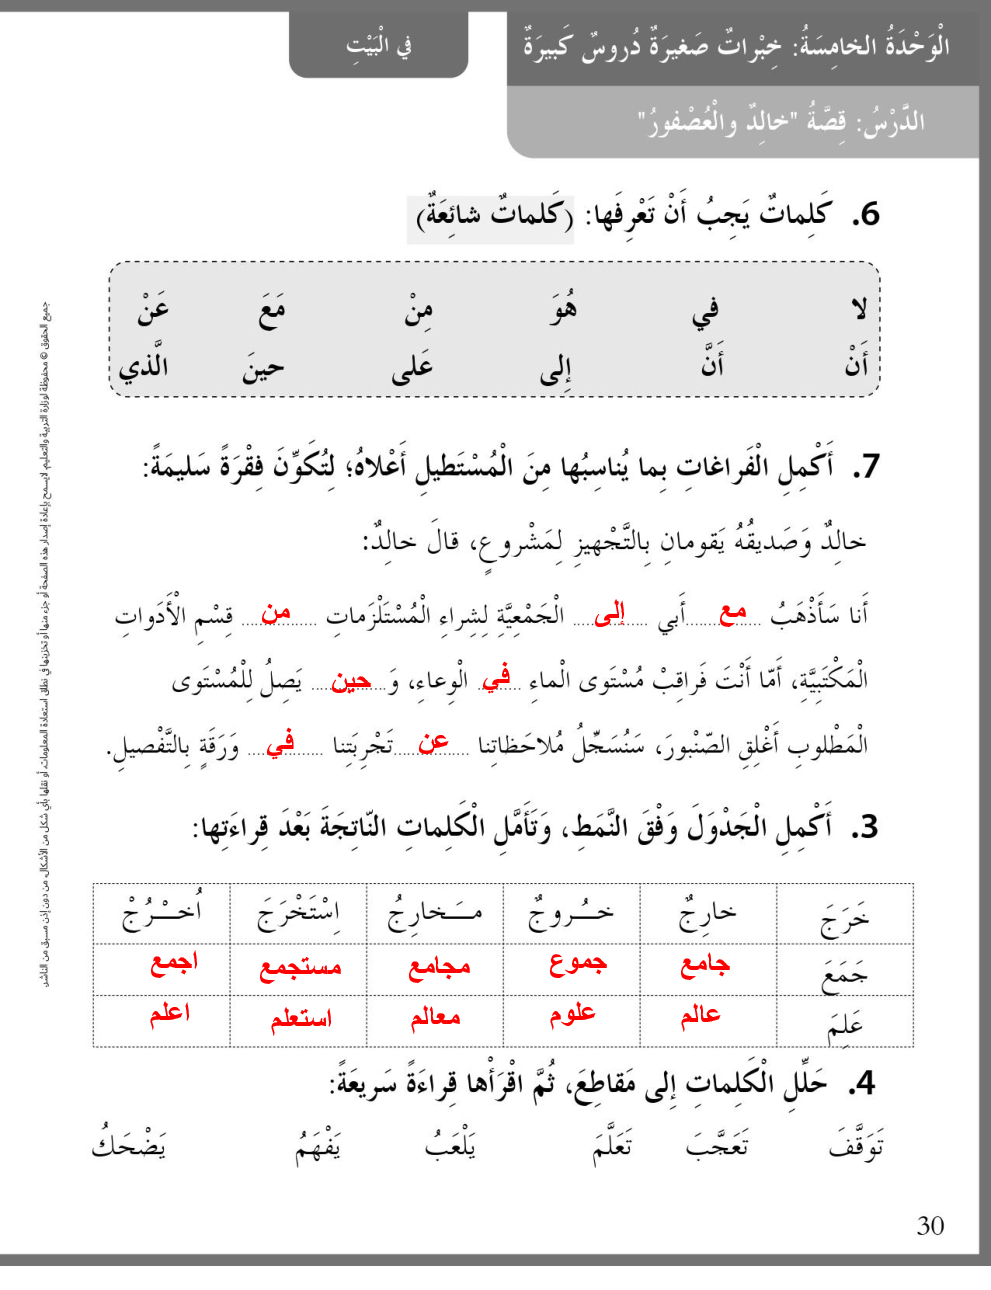 الْوَحْدَةُ الخامِسَةُ: خِبْراتٌ صَغيرَةٌ دُروسٌ كَبيرَةٌ
في الْبَيْتِ
الدَّرْسُ: قِصَّةُ "خالِدٌ والْعُصْفورُ"
6. كَلِماتٌ يَجِبُ أَنْ تَعْرِفَها: (كَلماتٌ شائِعَةٌ)
لا في هُوَ مِنْ مَعَ عَنْ
أَنْ أَنَّ إِلى عَلى حينَ الَّذي
7. أَكْمِلِ الْفَراغاتِ بِما يُناسِبُها مِنَ الْمُسْتَطيلِ أَعْلاهُ؛ لِتُكَوِّنَ فِقْرَةً سَليمَةً:
خالِدٌ وَصَديقُهُ يَقومانِ بِالتَّجْهيزِ لِمَشْروعٍ، قالَ خالِدٌ:
أَنا سَأَذْهَبُ ..... مع ..... أَبي ..... إلى ..... الْجَمْعِيَّةِ لِشِراءِ الْمُسْتَلْزَماتِ ..... من ..... قِسْمِ الأَدَواتِ
الْمَكْتَبِيَّةِ، أَمّا أَنْتَ فَراقِبْ مُسْتَوى الْماءِ ..... في ..... الْوِعاءِ، وَ ..... حين ..... يَصِلُ لِلْمُسْتَوى
الْمَطْلوبِ أَغْلِقِ الصّنْبورَ، سَنُسَجِّلُ مُلاحَظاتِنا ..... عن ..... تَجْرِبَتِنا ..... في ..... وَرَقَةٍ بِالتَّفْصيلِ.
3. أَكْمِلِ الْجَدْوَلَ وَفْقَ النَّمَطِ، وَتَأَمَّلِ الْكَلِماتِ النّاتِجَةَ بَعْدَ قِراءَتِها:
خَرَجَ خارِجٌ خـُـروجٌ مـَـخارِجُ اِسْتَخْرَجَ اُخـْـرُجْ
جَمَعَ جامع جموع مجامع مستجمع اجمع
عَلِمَ عالم علوم معالم استعلم اعلم
4. حَلِّلِ الْكَلِماتِ إِلى مَقاطِعَ، ثُمَّ اقْرَأْها قِراءَةً سَريعَةً:
تَوَقَّفَ تَعَجَّبَ تَعَلَّمَ يَلْعَبُ يَفْهَمُ يَضْحَكُ
30
جميع الحقوق © محفوظة لوزارة التربية والتعليم. لايسمح بإعادة إصدار هذه الصفحة أو جزء منها أو تخزينها في نطاق استعادة المعلومات، أو نقلها بأي شكل من الأشكال، من دون إذن مسبق من الناشر.